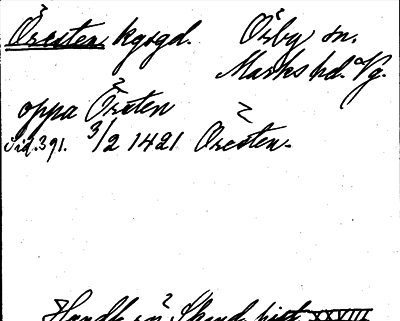 Öresten kgsgd. Örby sn.
Marks hd. Vg.
oppa Örsten
Sid. 391. 3/2 1421 Öresten.
Handl. rö. Skand. hist. XXVIII